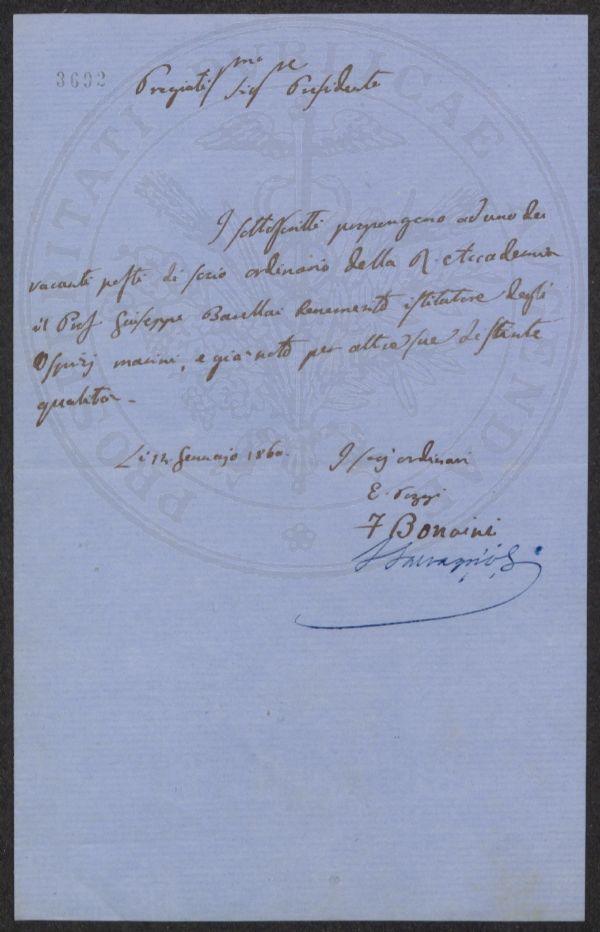 3692
Pregiatmo Sigre Presidente
I sottoscritti propongono ad uno dei
vacanti posti di socio ordinario della R. Accademia
il Prof Giuseppe Barellai benemerito istitutore degli
Ospizj marini, e già noto per altre sue distinte
qualità.
Li 12 Gennajo 1860.
I socj ordinari
E. Poggi
F Bonaini
PROSPERITATI PUBLICAE AUGENDAE